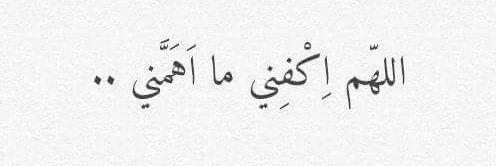 اللهّم اِكْفِني ما اَهَمَّني ..